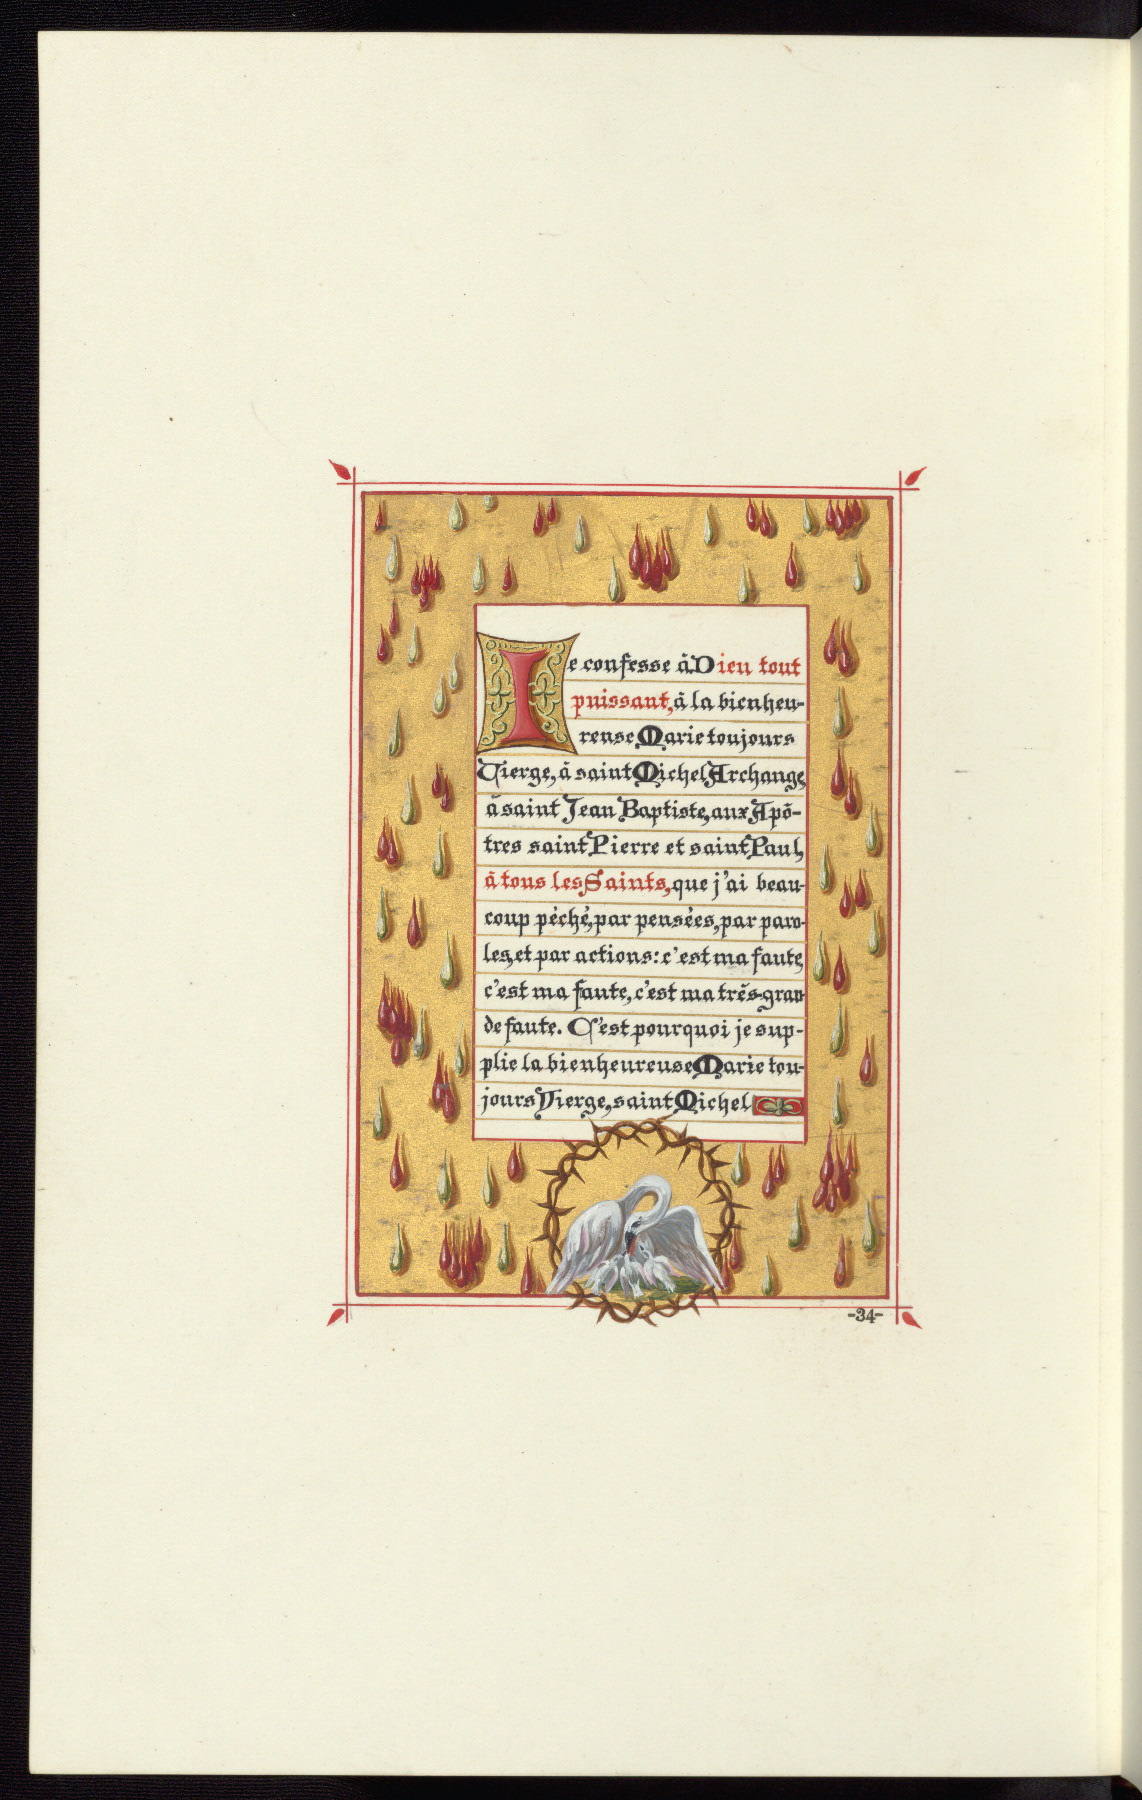 Je confesse à Dieu tout
puissant, à la bienheu-
reuse Marie toujours
Vierge, à saint Michel Archange,
à saint Jean Baptiste, aux Apô-
tres saint Pierre et saint Paul,
à tous les Saints, que j'ai beau-
coup péché, par pensées, par paro-
les, et par actions: c'est ma faute,
c'est ma faute, c'est ma très-gran-
de faute. C'est pourquoi je sup-
plie la bienheureuse Marie tou-
jours Vierge, saint Michel
-34-